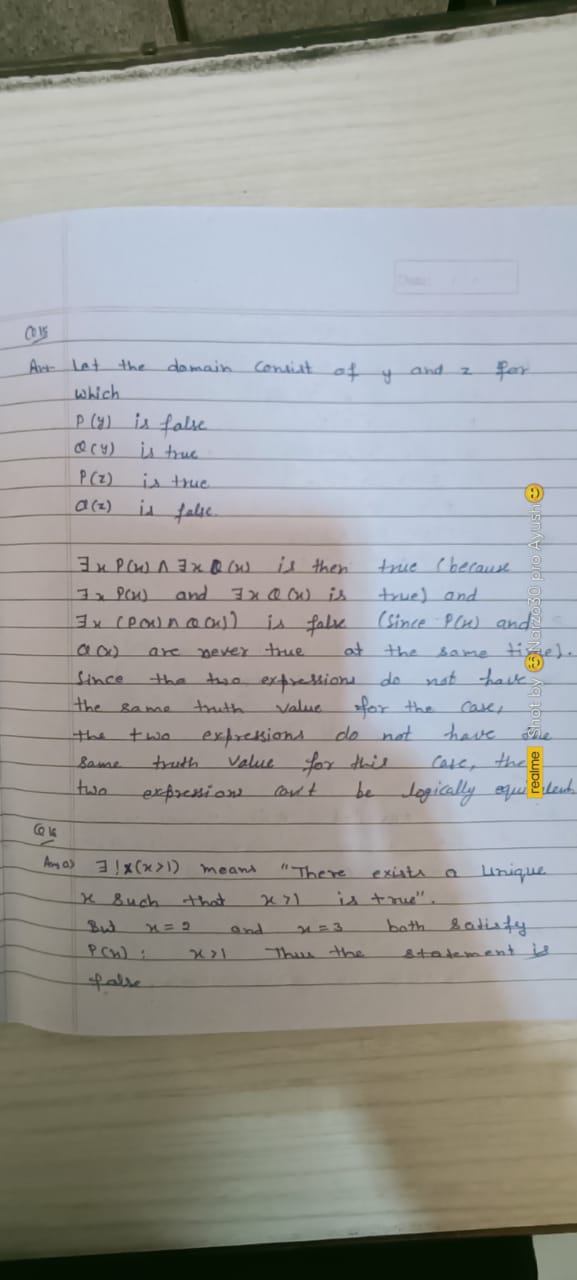 Date:
Q15
Ans- Let the domain consist of y and z for
which
P(y) is false
Q(y) is true
P(z) is true
Q(z) is false.
∃x P(x) ∧ ∃x Q(x) is then true (because
∃x P(x) and ∃x Q(x) is true) and
∃x (P(x) ∧ Q(x)) is false (Since P(x) and
Q(x) are never true at the same time).
Since the two expressions do not have
the same truth value for the case,
the two expressions do not have the
same truth value for this case, the
two expressions can't be logically equivalent
Q16
Ans a) ∃!x(x>1) means "There exists a unique
x such that x>1 is true".
But x=2 and x=3 both satisfy
P(x): x>1 Thus the statement is
false
realme Shot by 😊 Narzo30 pro Ayush😊